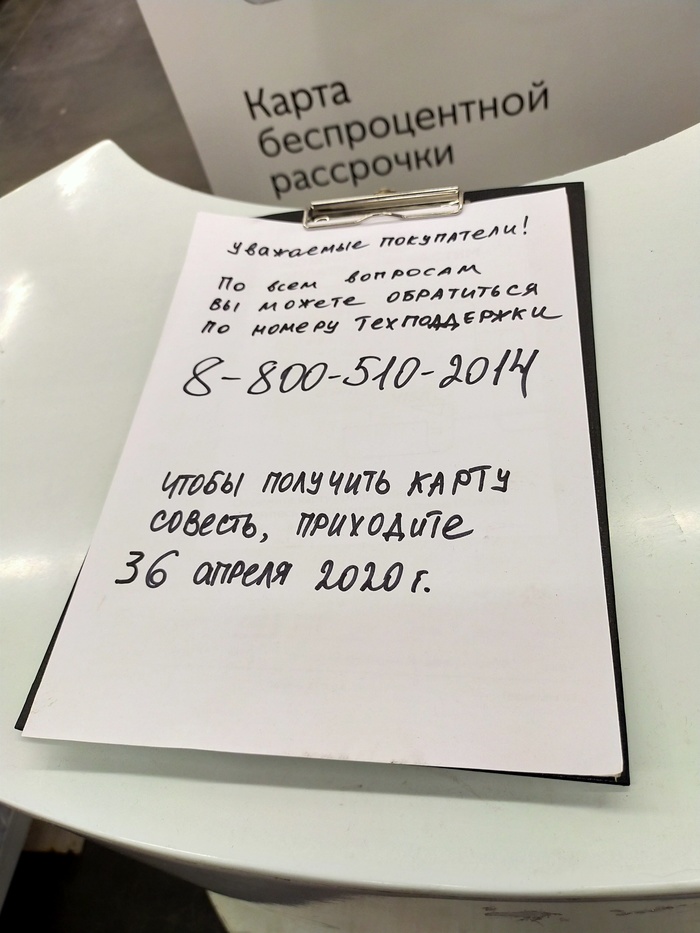 Карта
беспроцентной
рассрочки
Уважаемые покупатели!
По всем вопросам
вы можете обратиться
по номеру техподдержки
8-800-510-2014
чтобы получить карту
совесть, приходите
36 апреля 2020 г.